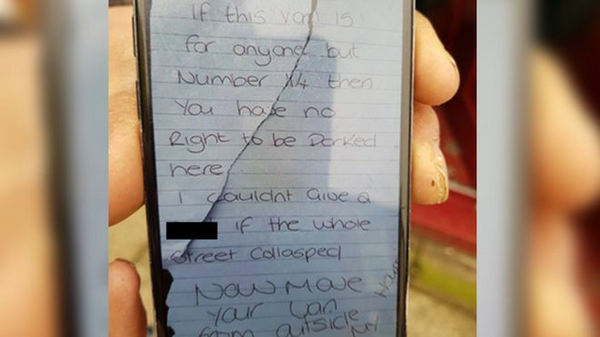 If this van is
for anyone but
Number 14 then
You have no
Right to be Parked
here
I couldnt Give a
if the whole
Street Collasped
NOW MOVE
Your Van
from outside My